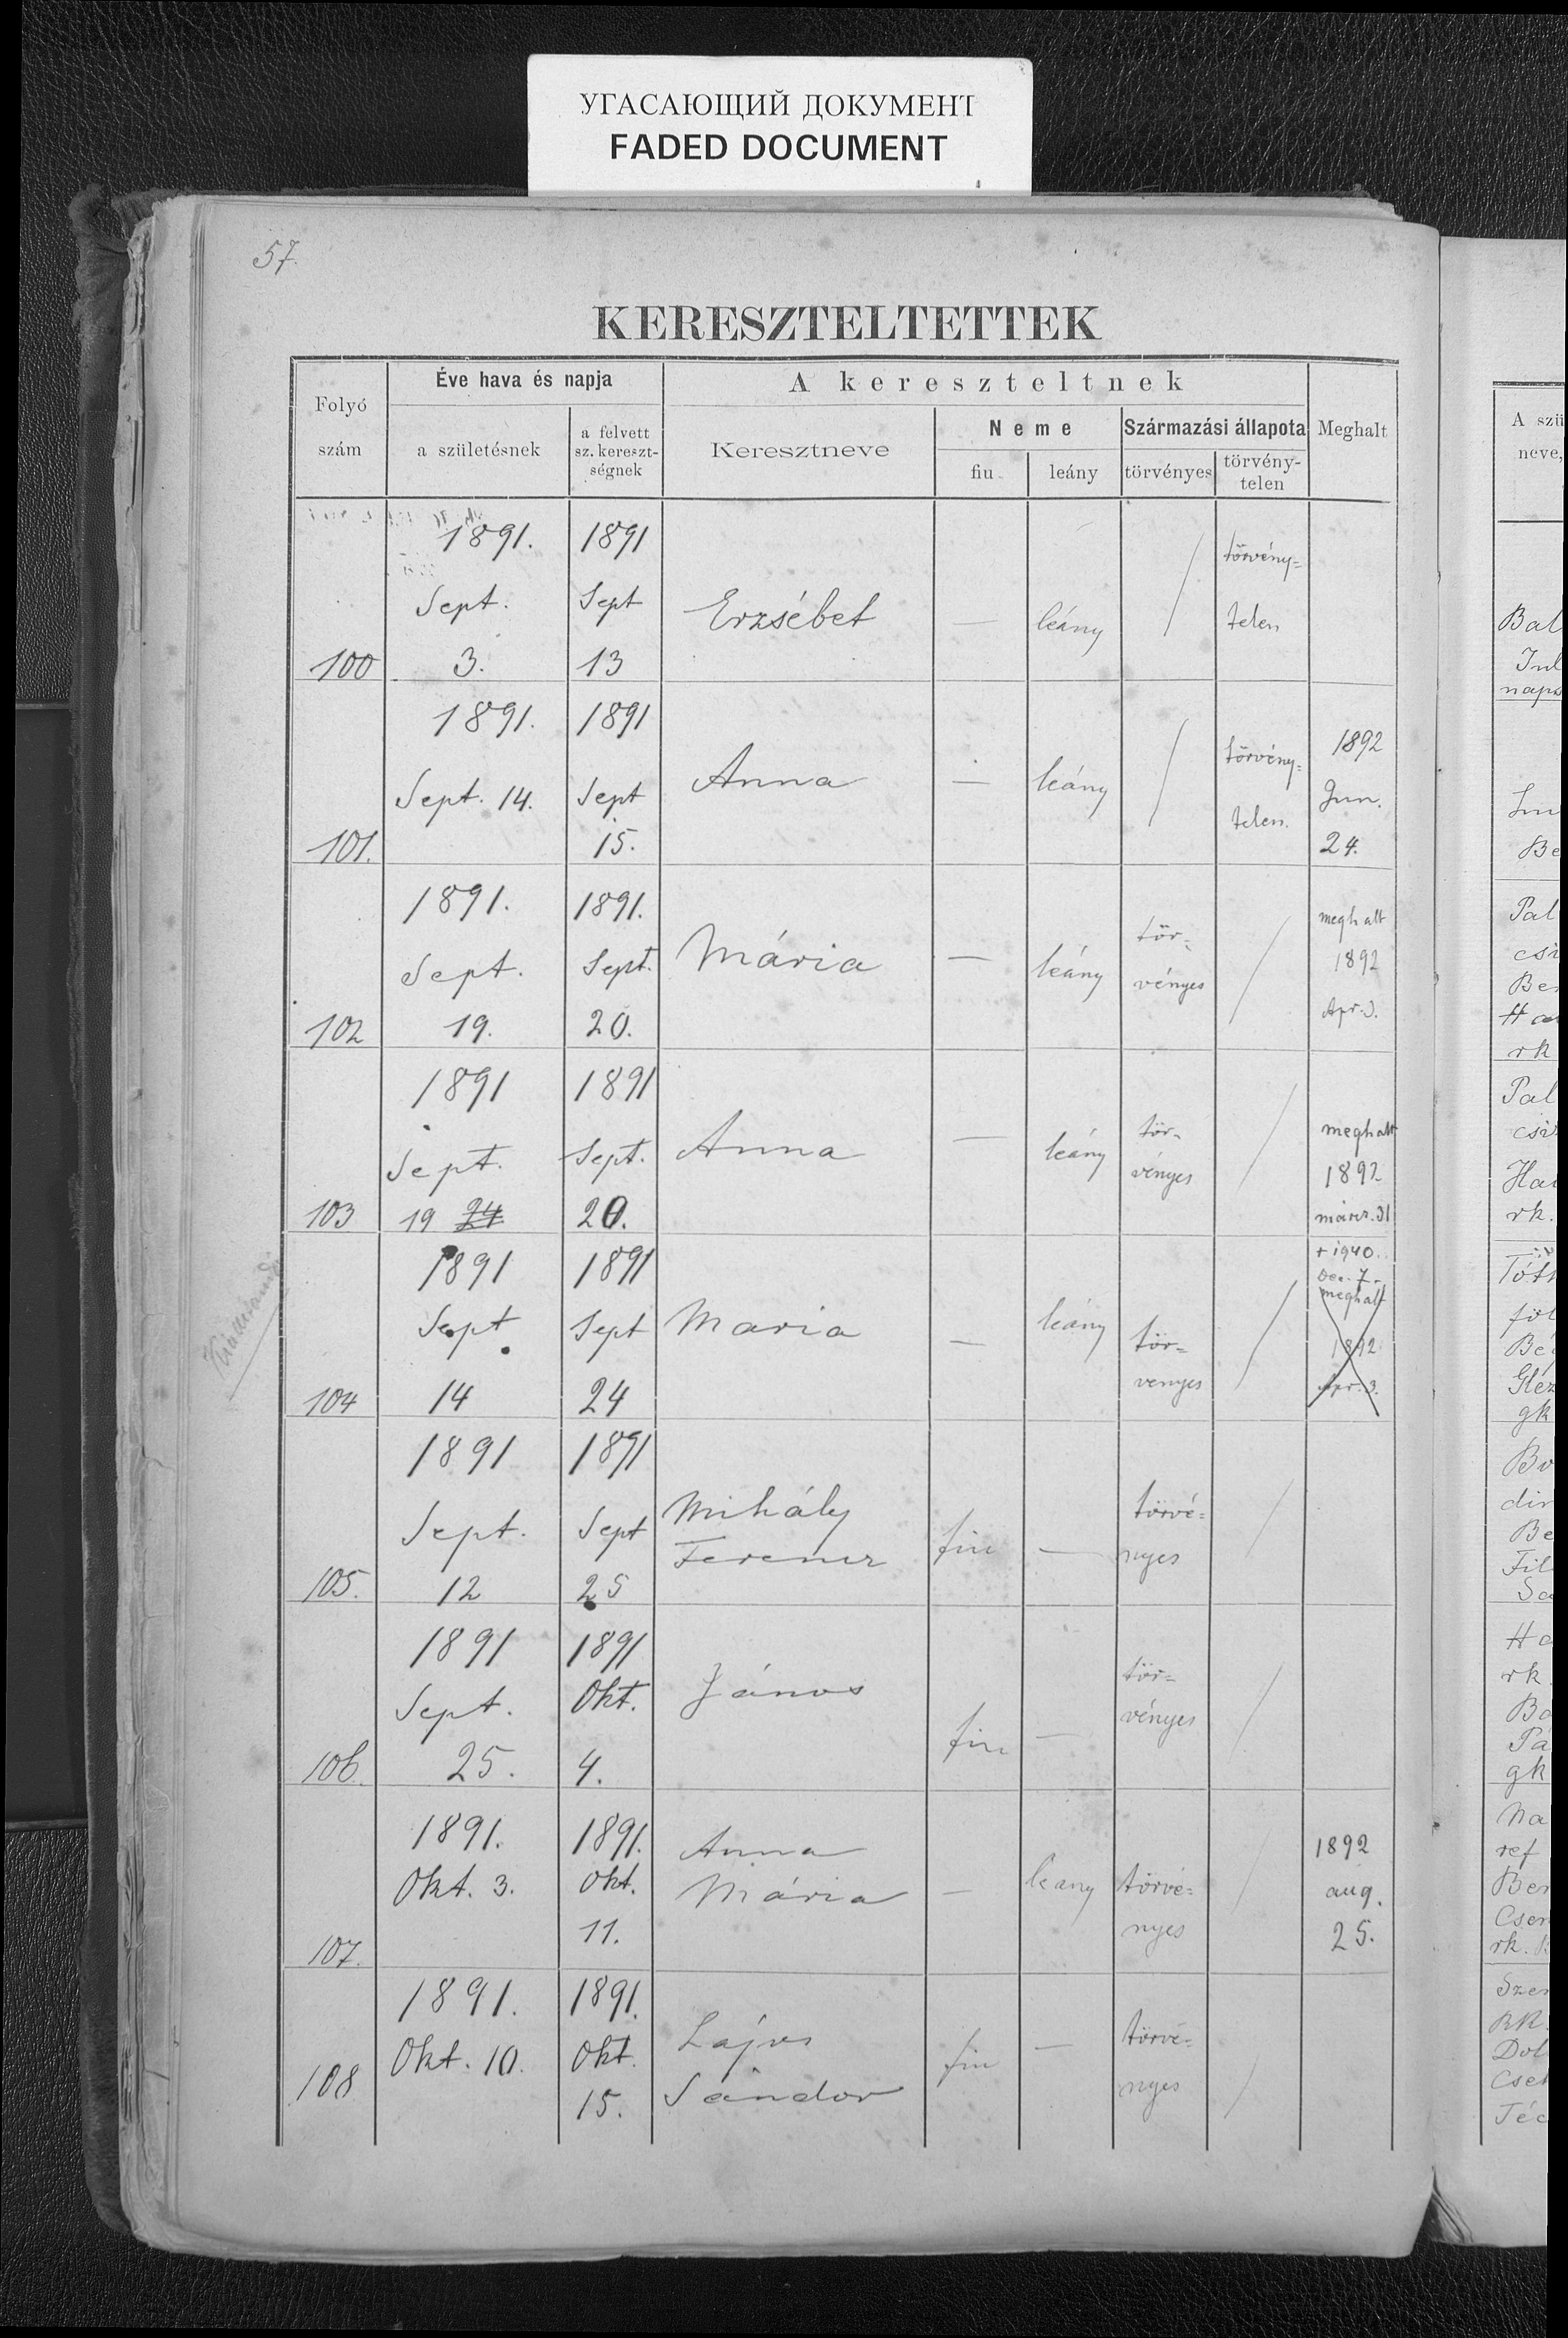 УГАСАЮЩИЙ ДОКУМЕНТ
FADED DOCUMENT
57.
KERESZTELTETTEK
Folyó szám
Éve hava és napja
a születésnek
a felvett sz. kereszt-ségnek
A kereszteltnek
Keresztneve
Neme
fiu
leány
Származási állapota
törvényes
törvény-telen
Meghalt
100 1891. Sept. 3. 1891 Sept 13 Erzsébet — leány / törvény= telen
101. 1891. Sept. 14. 1891 Sept 15. Anna — leány / törvény= telen. 1892 Jun. 24.
102 1891. Sept. 19. 1891. Sept. 20. Mária — leány tör= vényes / meghalt 1892 Apr. 3.
103 1891 Sept. 19 24 1891 Sept. 20. Anna — leány tör- vényes / meghalt 1892 márcz. 31
104 1891 Sept 14 1891 Sept 24 Maria — leány tör= venyes / + 1940. Dec. 7. meghalt 1892 Apr. 3.
105. 1891 Sept. 12 1891 Sept 25 Mihály Ferencz fiu — törvé= nyes /
106. 1891 Sept. 25. 1891 Okt. 4. János fiu — tör= vényes /
107. 1891. Okt. 3. 1891. Okt. 11. Anna Mária — leany törvé= nyes / 1892 aug. 25.
108 1891. Okt. 10. 1891. Okt. 15. Lajos Sándor fiu — törvé= nyes /
A szü
neve,
Bal
Jul
naps
Be
Pal
csi
Ber
Ha
rk
Pal
csi
Ha
rk.
Tót
föl
Bé
Gléz
gk
Be
Fil
Ha
rk
Pa
gk
Na
ref
Ber
Cser
rk.
Szer
RK.
Dol
Cse
Téc